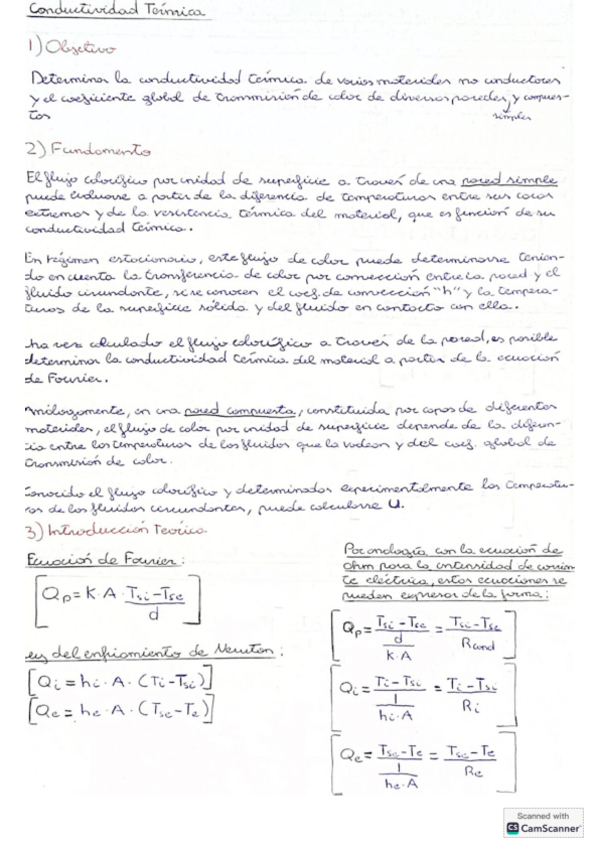 Conductividad Térmica
1) Objetivo
Determinar la conductividad térmica de varios materiales no conductores
y el coeficiente global de transmisión de calor de diversas paredes, y compues-
tas simples
2) Fundamento
El flujo calorífico por unidad de superficie a través de una pared simple
puede evaluarse a partir de la diferencia de temperaturas entre sus caras
extremas y de la resistencia térmica del material, que es función de su
conductividad térmica.
En régimen estacionario, este flujo de calor puede determinarse tenien-
do en cuenta la transferencia de calor por convección entre la pared y el
fluido circundante, si se conocen el coef. de convección "h" y la tempera-
turas de la superficie sólida y del fluido en contacto con ella.
na vez calculado el flujo calorífico a través de la pared, es posible
determinar la conductividad térmica del material a partir de la ecuación
de Fourier.
nálogamente, en una pared compuesta, constituida por capas de diferentes
materiales, el flujo de calor por unidad de superficie depende de la diferen-
cia entre las temperaturas de los fluidos que la rodean y del coef. global de
transmisión de calor.
Conocido el flujo calorífico y determinadas experimentalmente las temperatu-
ras de los fluidos circundantes, puede calcularse U.
3) Introducción Teórica
Ecuación de Fourier:
Qp = K·A· Tsi-Tse / d
ey del enfriamiento de Newton:
[Qi = hi·A·(Ti-Tsi)]
[Qe = he·A·(Tse-Te)]
Por analogía con la ecuación de
ohm para la intensidad de corrien-
te eléctrica, estas ecuaciones se
pueden expresar de la forma:
Qp = Tsi-Tse / d/K·A = Tsi-Tse / Rcond
Qi = Ti-Tsi / 1/hi·A = Ti-Tsi / Ri
Qe = Tse-Te / 1/he·A = Tse-Te / Re
Scanned with
CS CamScanner